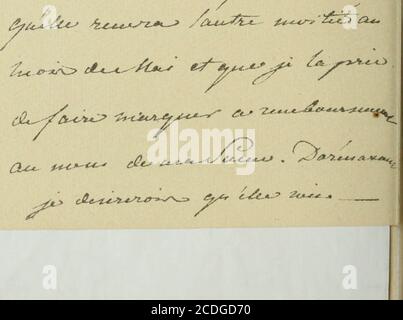 qu'elle renvra l'autre moitié au
mois de Mai et que je la prie
de faire marquer ce remboursement
au nom de
je desirerois qu'elle
alamy
Image ID: 2CDGD70
www.alamy.com